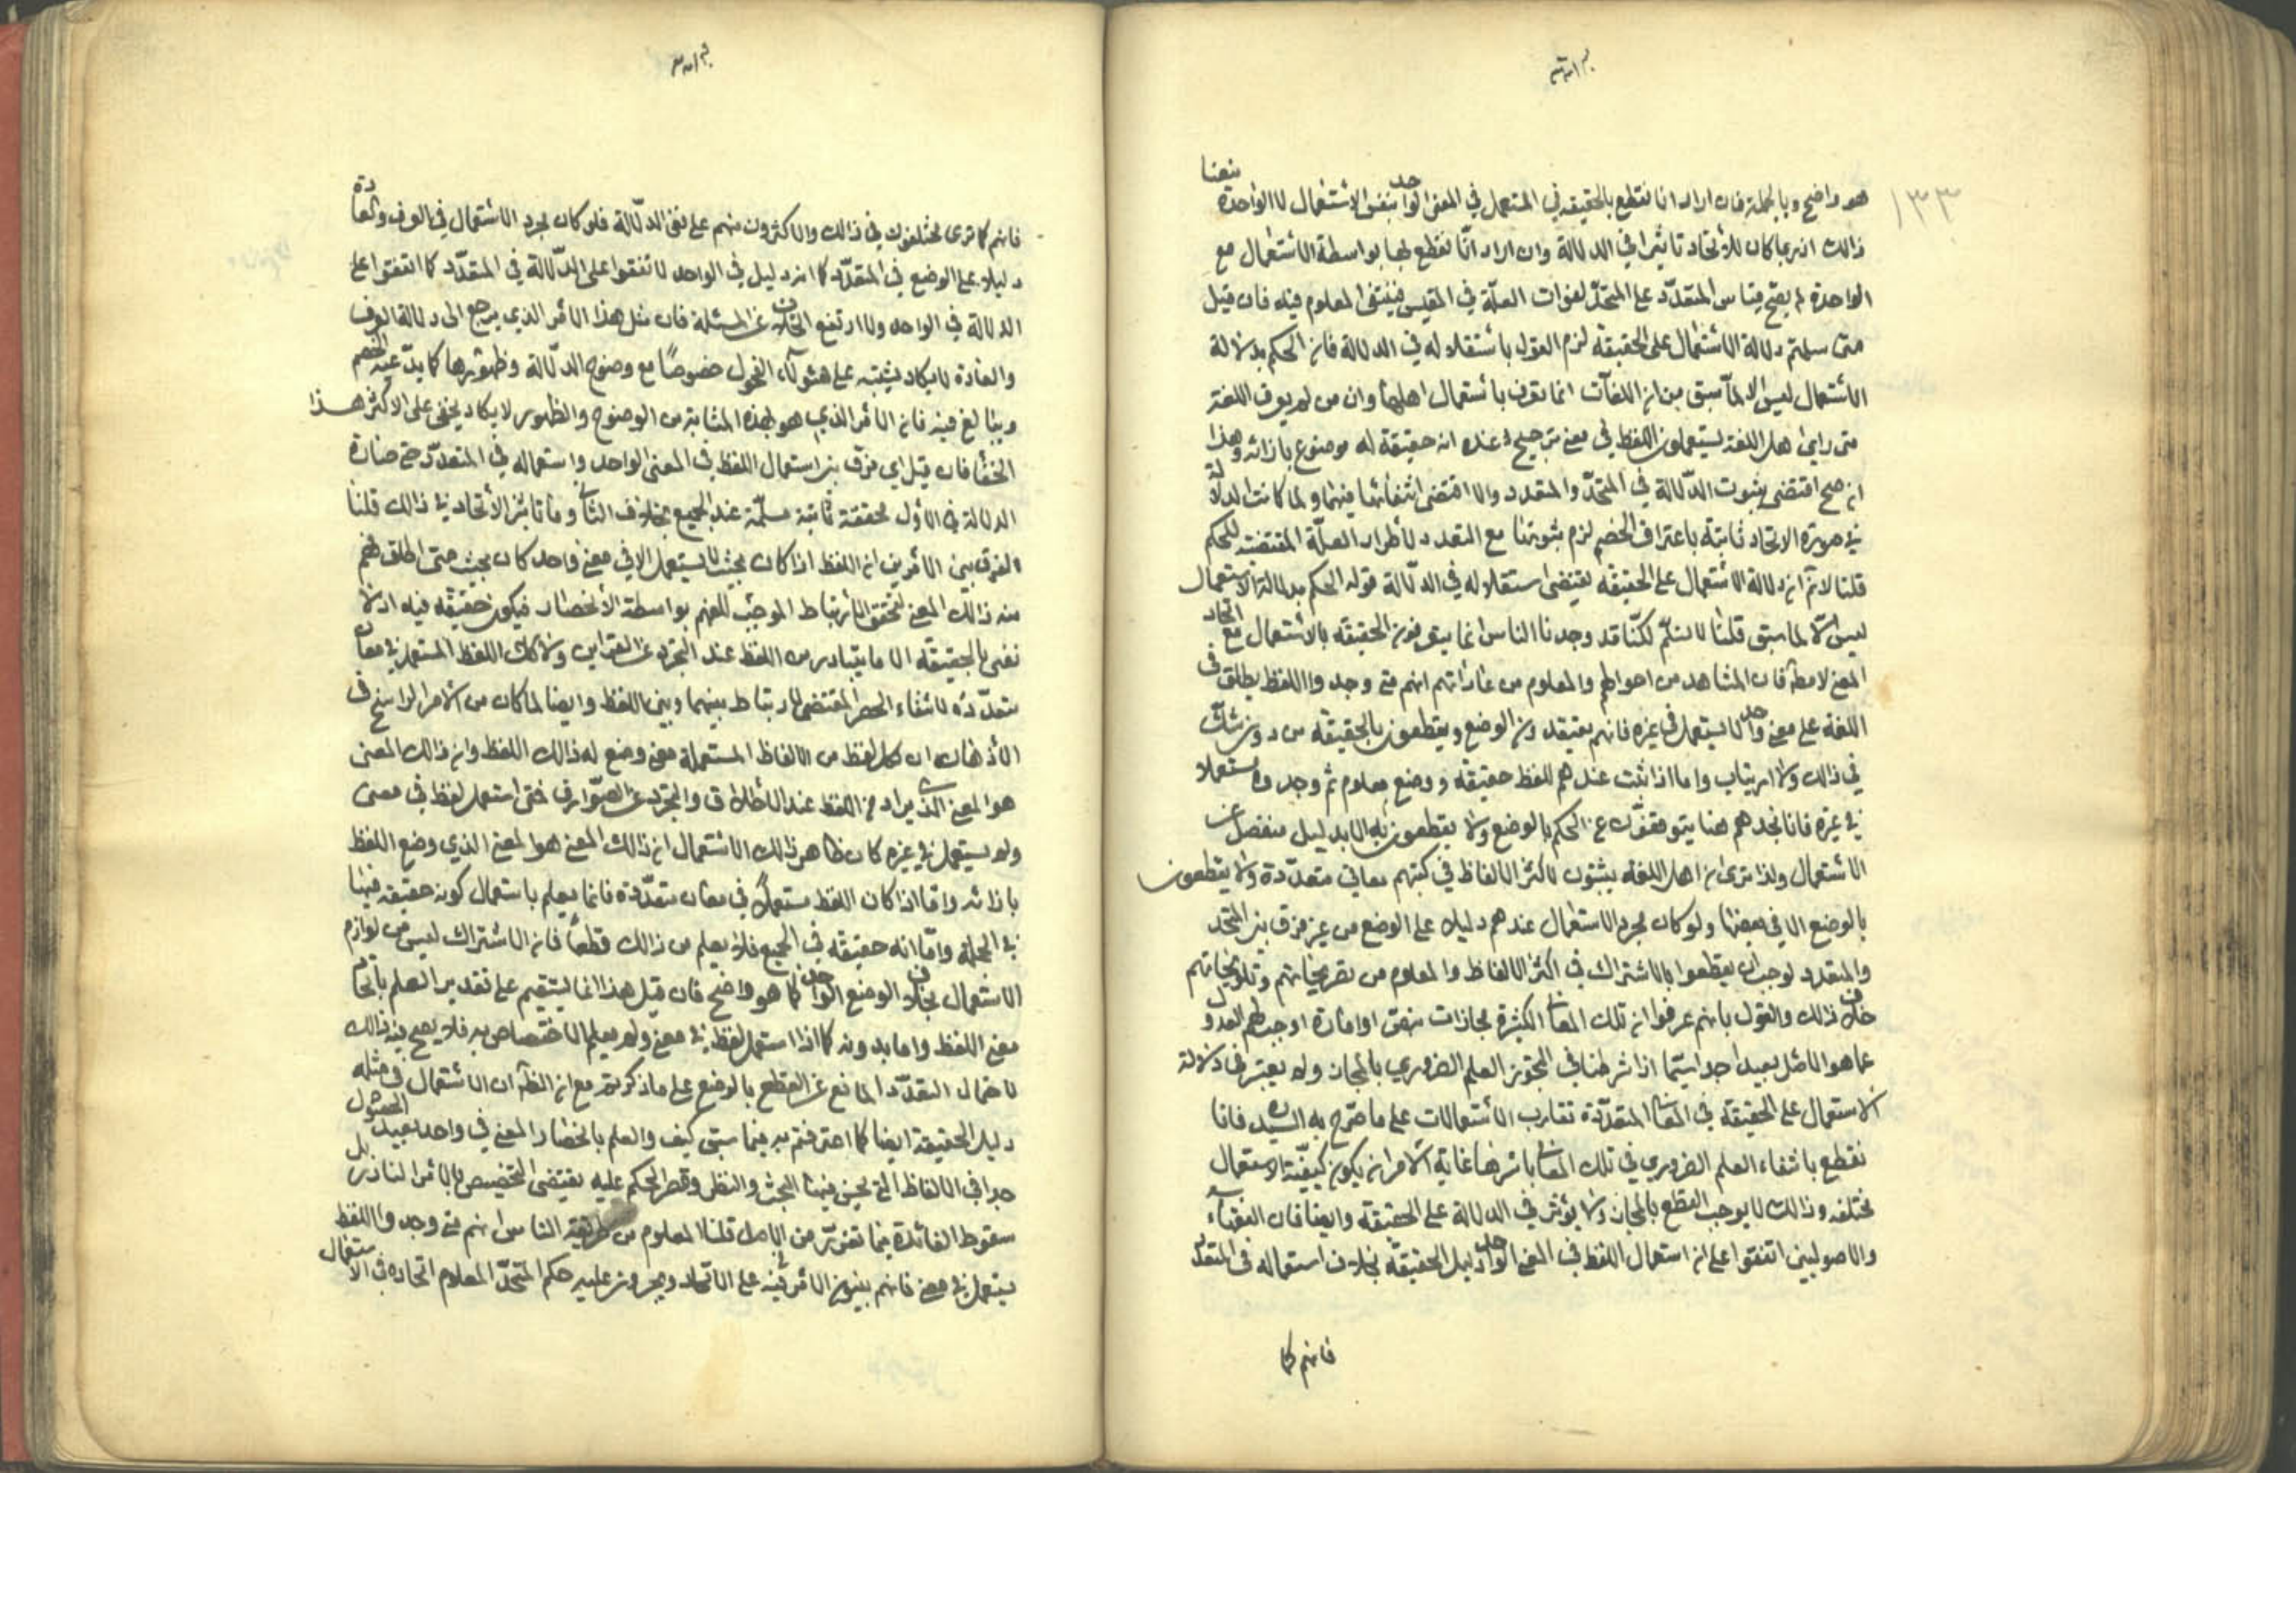 ١٣٣
هو واضح وبالجملة فان اراد انا نقطع بالحقيقة في المستعمل في المعنى الواحد بنفس الاستعمال لا الواحدة منعنا
ذالك اذ ربما كان للاتحاد تاثيرا في الدلالة وان اراد انّا نقطع لها بواسطة الاستعمال مع
الواحدة لم يصح قياس المتعدّد على المتحدّ لفوات العلّة في المقيس فينتفى المعلوم فيه فان قيل
متى سلمتم دلالة الاستعمال على الحقيقة لزم القول باستقلاله في الدلالة فان الحكم بدلالة
الاستعمال ليس الا لماّ سبق من ان اللغات انما تعرف باستعمال اهلها وان من لم يعرف اللغة
متى راى اهل اللغة يستعملون اللفظ في معنى ترجيح عنده انه حقيقة له موضوع بازائه وهذا
ان صح اقتضى ثبوت الدّلالة في المتحدّ والمتعدد والا اقتضى انتفائها فيهما ولما كانت الدلالة
في صورة الاتحاد ثابتة باعتراف الخصم لزم ثبوتها مع المتعدد لاطراد العلّة المقتضية للحكم
قلنا لا نم ان دلالة الاستعمال على الحقيقة يقتضى استقلاله في الدلّالة قوله الحكم بدلالة الاستعمال
ليس الّا لما سبق قلنا لا نسلّم لكنّا قد وجدنا الناس انما يعرفون الحقيقة بالاستعمال مع اتحاد
المعنى لا مطلقا فان المشاهد من احوالهم والمعلوم من عاداتهم انهم متى وجدوا اللفظ يطلق في
اللغة على معنى واحد لا يستعمل في غيره فانهم يعتقدون الوضع ويقطعون بالحقيقة من دون شكّ
في ذالك ولا ارتياب واما اذا ثبت عندهم للفظ حقيقة ووضع معلوم ثم وجدوه مستعملا
في غيره فانا نجدهم هنا يتوقفون عن الحكم بالوضع ولا يقطعون به الا بدليل منفصل عن
الاستعمال ولذا ترى ان اهل اللغة يثبتون لاكثر الالفاظ في كتبهم معاني متعدّدة ولا يقطعون
بالوضع الا في بعضها ولو كان مجرد الاستعمال عندهم دليلا على الوضع من غير فرق بين المتحد
والمتعدد لوجب ان يقطعوا بالاشتراك في اكثر الالفاظ والمعلوم من تصريحاتهم وتلويحاتهم
خلاف ذالك والقول بانهم عرفوا ان تلك المعانى الكثيرة مجازات بنص او امارة اوجب لهم العدول
عما هو الاصل بعيد جدا سيّما اذا شرطنا في التجوز العلم الضروري بالمجاز ولم يعتبر في دلالة
الاستعمال على الحقيقة في المعانى المتعدّدة تقارب الاستعمالات على ما صرّح به السيّد فانا
نقطع بانتفاء العلم الضروري في تلك المعانى باسرها غاية الامر ان يكون كيفيّة الاستعمال
مختلفة وذالك لا يوجب القطع بالمجاز ولا يؤثر في الدلالة على الحقيقة وايضا فان الفقهاء
والاصوليين اتفقوا على ان استعمال اللفظ في المعنى الواحد دليل الحقيقة بخلاف استعماله في المتعدد
فانهم كما
فانهم كما ترى مختلفون في ذالك والاكثرون منهم على نفى الدلّالة فلو كان مجرد الاستعمال في العرف والعادة
دليلا على الوضع في المتعدّد كما انه دليل في الواحد لاتفقوا على الدّلالة في المتعدّد كما اتفقوا على
الدلالة في الواحد ولا ارتفع الخلاف عن المسئلة فان مثل هذا الامر الذي يرجع الى دلالة العرف
والعادة لا يكاد يشتبه على هئولآء الفحول خصوصًا مع وضوح الدلّالة وظهورها كما يدّعيه الخصم
ويبالغ فيه فان الامر الذي هو بهذه المثابة من الوضوح والظهور لا يكاد يخفى على الاكثر هذا
الخفا فان قيل اي فرق بين استعمال اللفظ في المعنى الواحد واستعماله في المتعدّد حتى صارة
الدلالة في الاول محققة ثابتة مسلّمة عند الجميع بخلاف الثانى وما تاثير الاتحاد في ذالك قلنا
الفرق بين الامرين ان اللفظ اذا كان بحيث لا يستعمل الا في معنى واحد كان بحيث متى اطلق فهم
منه ذالك المعنى لتحقق الارتباط الموجب للفهم بواسطة الانحصار فيكون حقيقة فيه اذ لا
نعنى بالحقيقة الا ما يتبادر من اللفظ عند التجرد عن القراين ولا كك اللفظ المستعمل في معان
متعدّدة لانتفاء الحصر المقتضى للارتباط بينهما وبين اللفظ وايضا لما كان من الامر الراسخ في
الاذهان ان كل لفظ من الالفاظ المستعملة معنى وضع له ذالك اللفظ وان ذالك المعنى
هو المعنى الذى يراد من اللفظ عند الاطلاق والتجرد عن الصّوارف فمتى استعمل لفظ في معنى
ولم يستعمل في غيره كان ظاهر ذالك الاستعمال ان ذالك المعنى هو المعنى الذي وضع اللفظ
بازائه وامّا اذا كان اللفظ مستعملاً في معان متعدّدة فانما يعلم باستعمال كونه حقيقة فيها
في الجملة وامّا انه حقيقة في الجميع فلا يعلم من ذالك قطعاً فان الاشتراك ليس من لوازم
الاستعمال بخلاف الوضع الواحد كما هو واضح فان قيل هذا انما يستقيم على تقدير العلم باتحاد
معنى اللفظ واما بدونه كما اذا استعمل لفظ في معنى ولم يعلم الاختصاص به فلا يصح فيه ذالك
لاحتمال التعدّد المانع عن القطع بالوضع على ما ذكرتم مع ان الظ ان الاستعمال في مثله
دليل الحقيقة ايضا كما اعترفتم به فيما سبق كيف والعلم بانحصار المعنى في واحد بعيد الحصول
جدا في الالفاظ التي يحسن فيها البحث والنظر وقصر الحكم عليه يقتضى التخصيص بالامر النادر بل
سقوط الفائدة فيما تقرّر من الاصل قلنا المعلوم من طريقة الناس انهم متى وجدوا اللفظ
يستعمل في معنى فانهم يبنون الامر فيه على الاتحاد ويجرون عليه حكم المتحدّ المعلوم اتحاده في الاستعمال